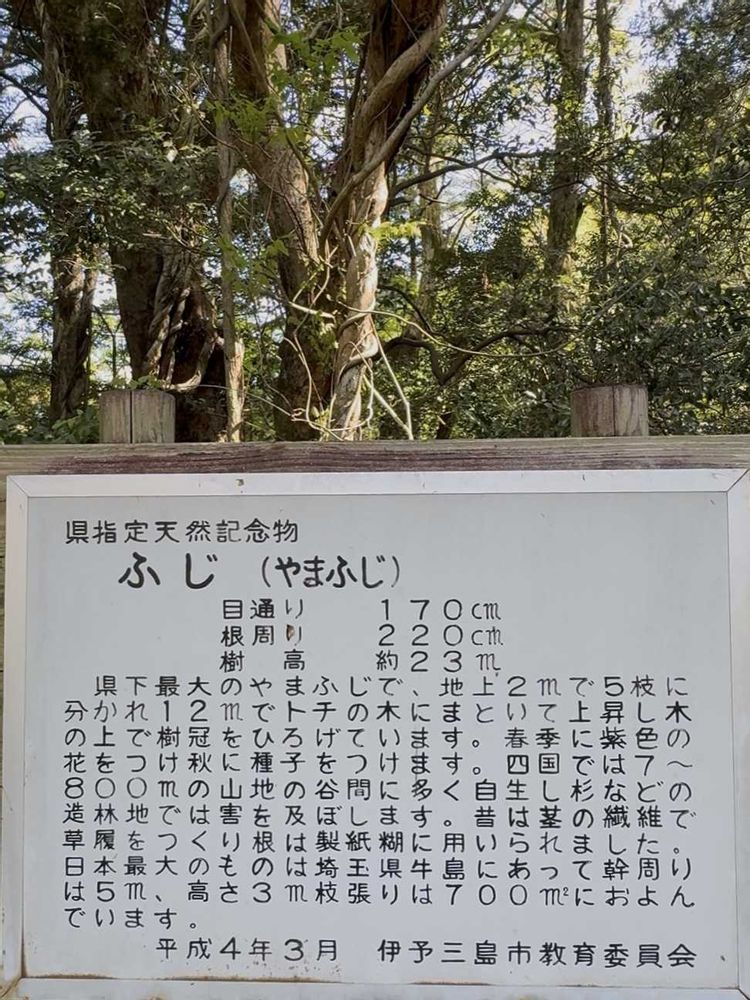 県指定天然記念物
ふじ (やまふじ)
目通り 170cm
根周り 220cm
樹高 約23m
県下最大のやまふじで、地上2mで5枝に
分かれ12mでトチの木にまといて上昇し木
の上で樹冠をひろげています。春季に紫色の
花をつけ秋に種子をつけます。四国では7～
800mの山地の谷間に多く自生し杉などの
造林地で害を及ぼします。昔は茎の繊維で
草履をつくり根は製紙糊に用いられました。
日本最大のものは埼玉県牛島にあって幹周り
は5m、高さ3m枝張りは700m²におよん
でいます。
平成4年3月 伊予三島市教育委員会